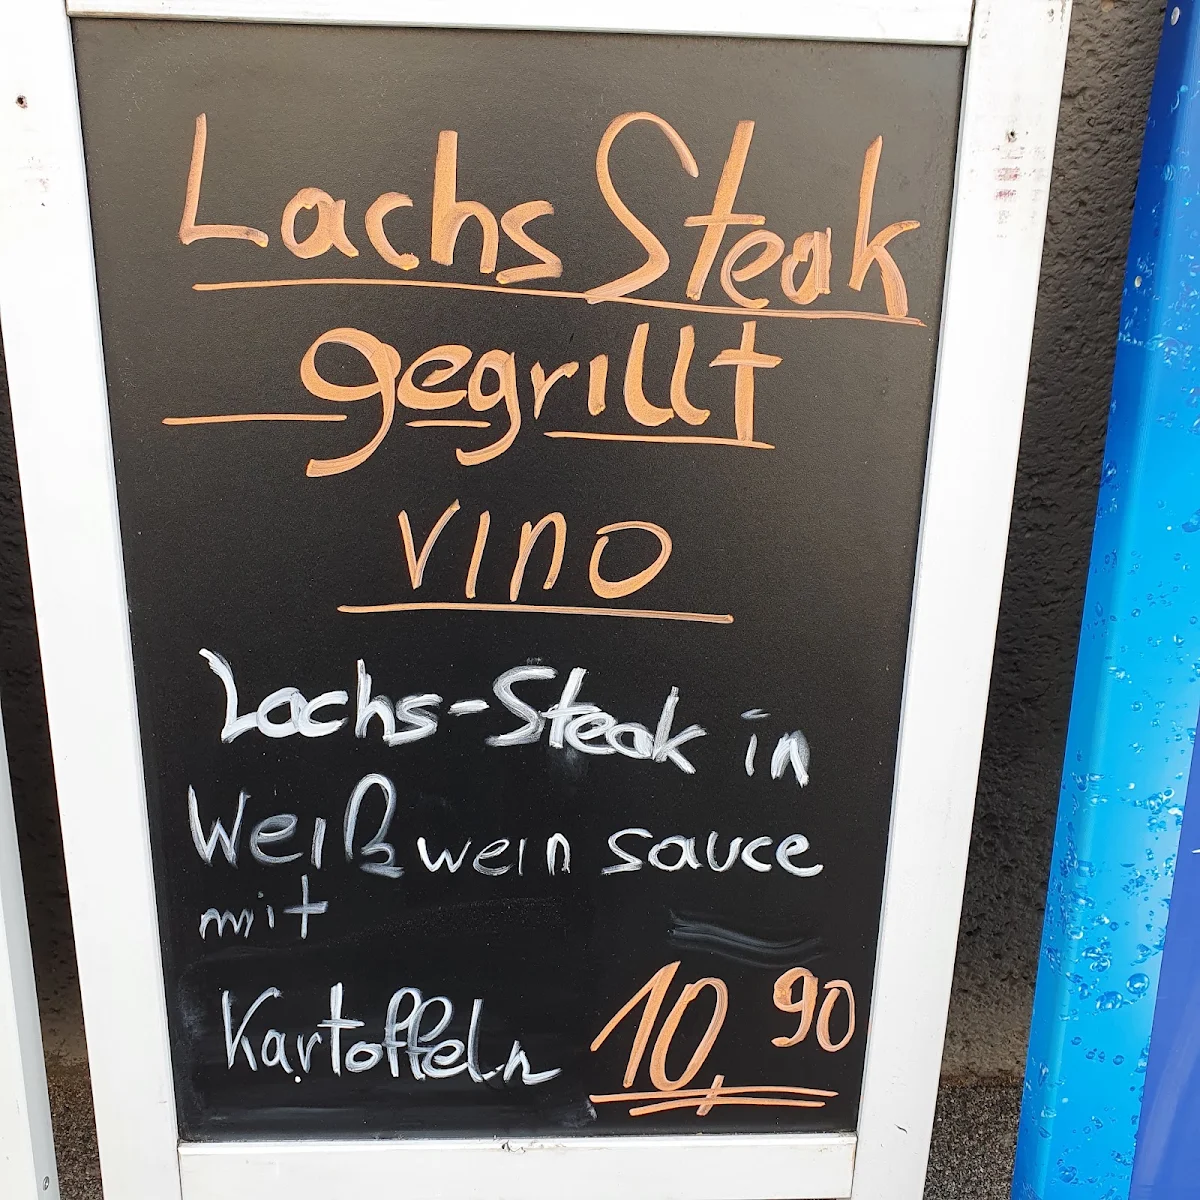 Lachs Steak
gegrillt
vino
Lachs-Steak in
Weißwein sauce
mit
Kartoffeln 10,90